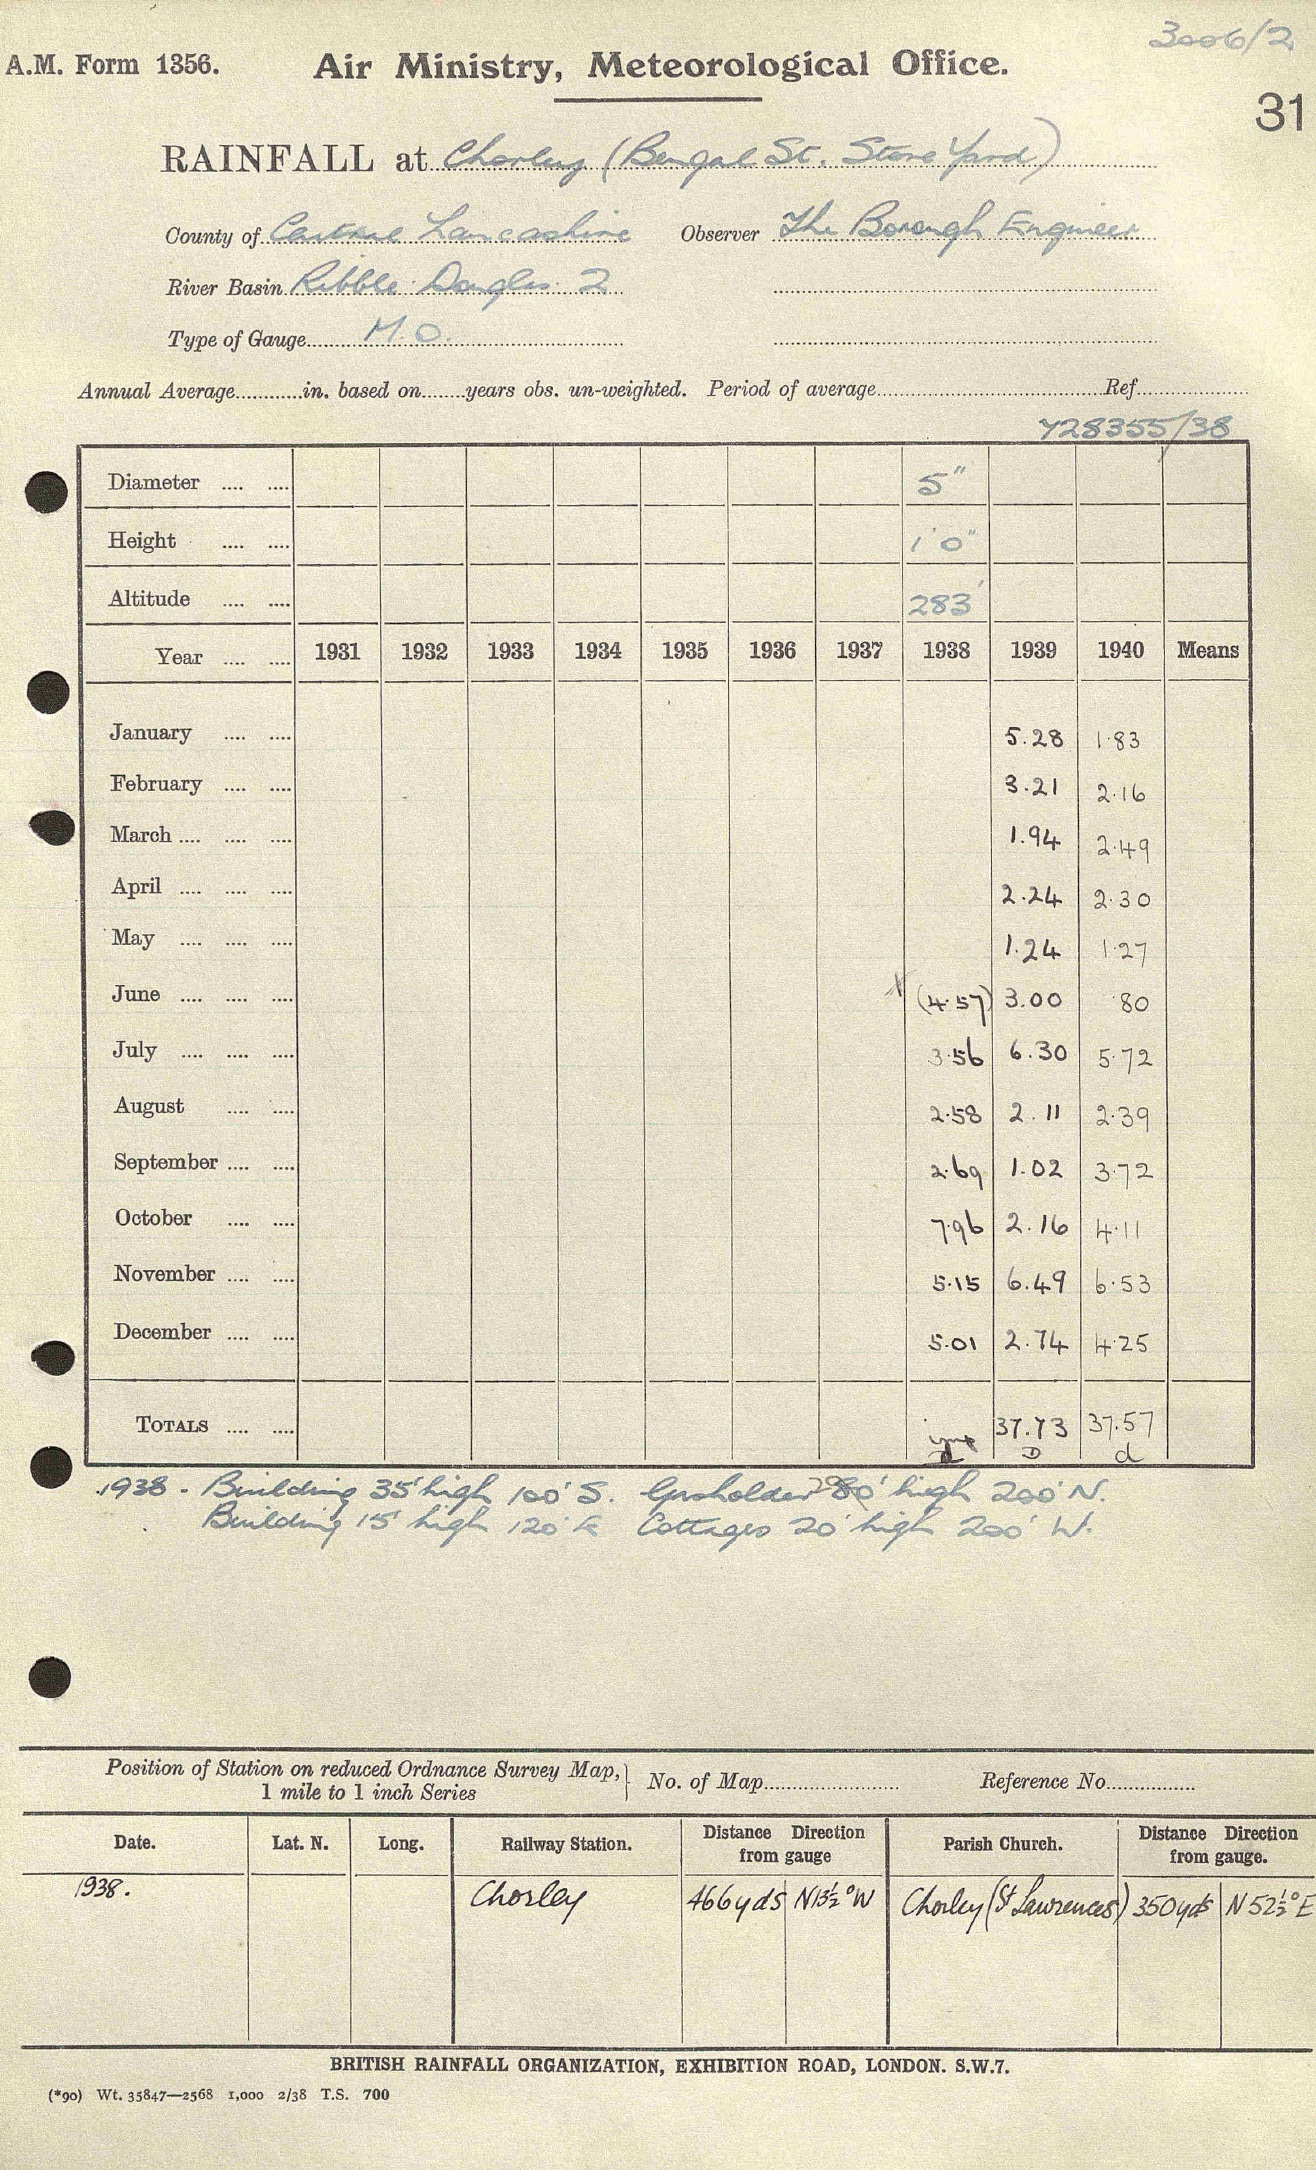 3006/2
A.M. Form 1356. Air Ministry, Meteorological Office.
31
RAINFALL at Chorley (Bengal St. Store Yard)
County of Central Lancashire Observer The Borough Engineer
River Basin Ribble Douglas 2
Type of Gauge M.O.
Annual Average............in. based on........years obs. un-weighted. Period of average............Ref............
728355/38
Diameter .... .... 5"
Height .... .... 1' 0"
Altitude .... .... 283'
Year .... .... 1931 1932 1933 1934 1935 1936 1937 1938 1939 1940 Means
January .... .... 5.28 1.83
February .... .... 3.21 2.16
March .... .... .... 1.94 2.49
April .... .... .... 2.24 2.30
May .... .... .... 1.24 1.27
June .... .... .... x (4.57) 3.00 .80
July .... .... .... 3.56 6.30 5.72
August .... .... 2.58 2.11 2.39
September .... .... 2.69 1.02 3.72
October .... .... 7.96 2.16 4.11
November .... .... 5.15 6.49 6.53
December .... .... 5.01 2.74 4.25
TOTALS .... .... 37.73 37.57
D d
1938. Building 35' high 100' S. Gasholder 80' high 200' N.
Building 15' high 120' E Cottages 20' high 200' W.
Position of Station on reduced Ordnance Survey Map, } No. of Map............ Reference No............
1 mile to 1 inch Series
Date. Lat. N. Long. Railway Station. Distance Direction from gauge Parish Church. Distance Direction from gauge.
1938. Chorley 466 yds N13½°W Chorley (St Lawrences) 350 yds N 52½° E
BRITISH RAINFALL ORGANIZATION, EXHIBITION ROAD, LONDON. S.W.7.
(*90) Wt. 35847—2568 1,000 2/38 T.S. 700